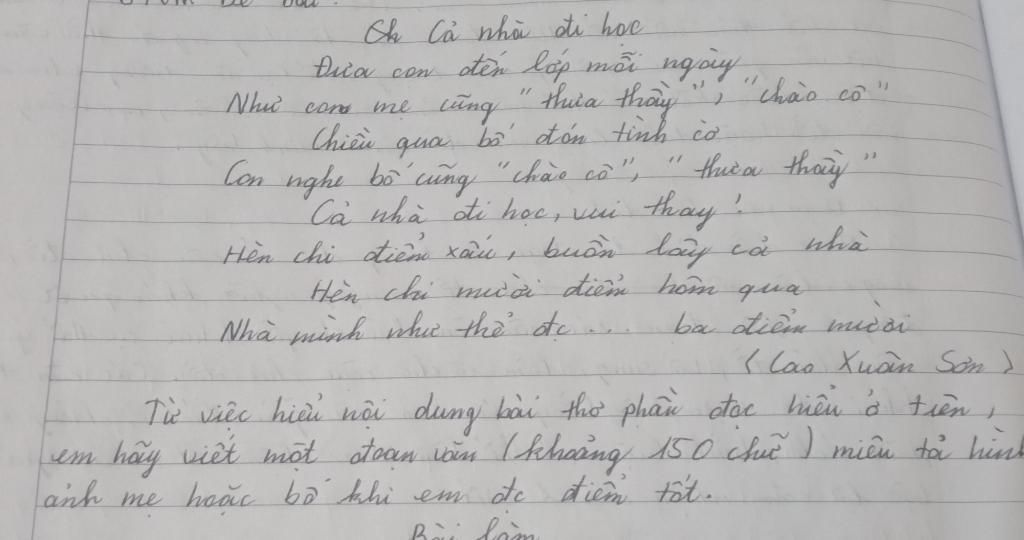 Cả nhà đi học
Đưa con đến lớp mỗi ngày
Như con mẹ cũng "thưa thầy", "chào cô"
Chiều qua bố đón tình cờ
Con nghe bố cũng "chào cô", "thưa thầy"
Cả nhà đi học, vui thay!
Hèn chi điểm xấu, buồn lây cả nhà
Hèn chi mười điểm hôm qua
Nhà mình như thể đc ... ba điểm mười
(Cao Xuân Sơn)
Từ việc hiểu nội dung bài thơ phần đọc hiểu ở trên,
em hãy viết một đoạn văn (khoảng 150 chữ) miêu tả hình
ảnh mẹ hoặc bố khi em đc điểm tốt.
Bài làm